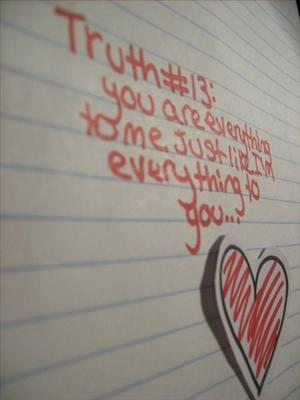 Truth#13:
you are everything
to me. just like I'm
everything to
you...